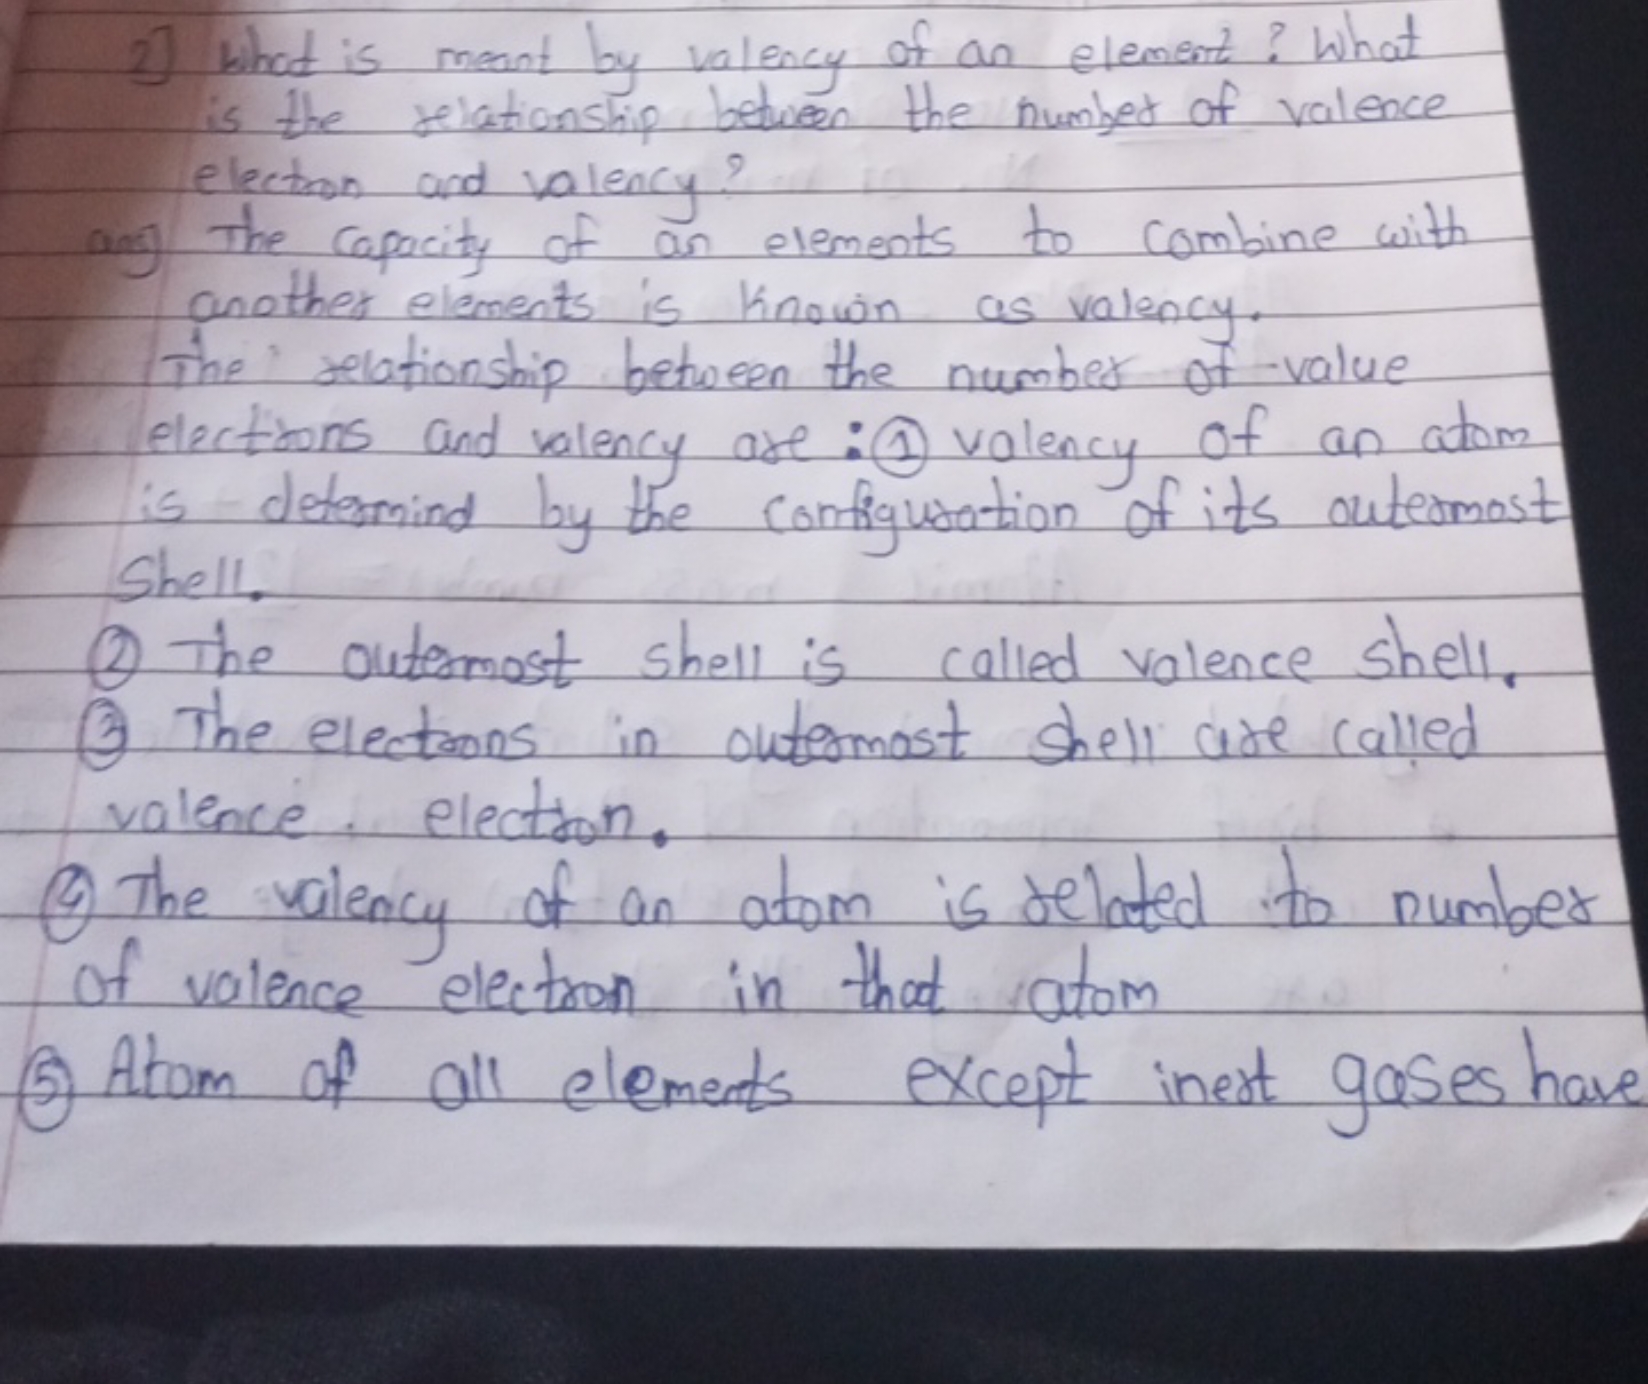 2] What is meant by valency of an element? What
is the relationship between the number of valence
electron and valency?
ans) The capacity of an elements to combine with
another elements is known as valency.
The relationship between the number of value
electrons and valency are : ① valency of an atom
is determind by the configuration of its outermost
Shell.
② The outermost shell is called valence shell.
③ The electrons in outermost shell are called
valence electron.
④ The valency of an atom is related to number
of valence electron in that atom
⑤ Atom of all elements except inert gases have